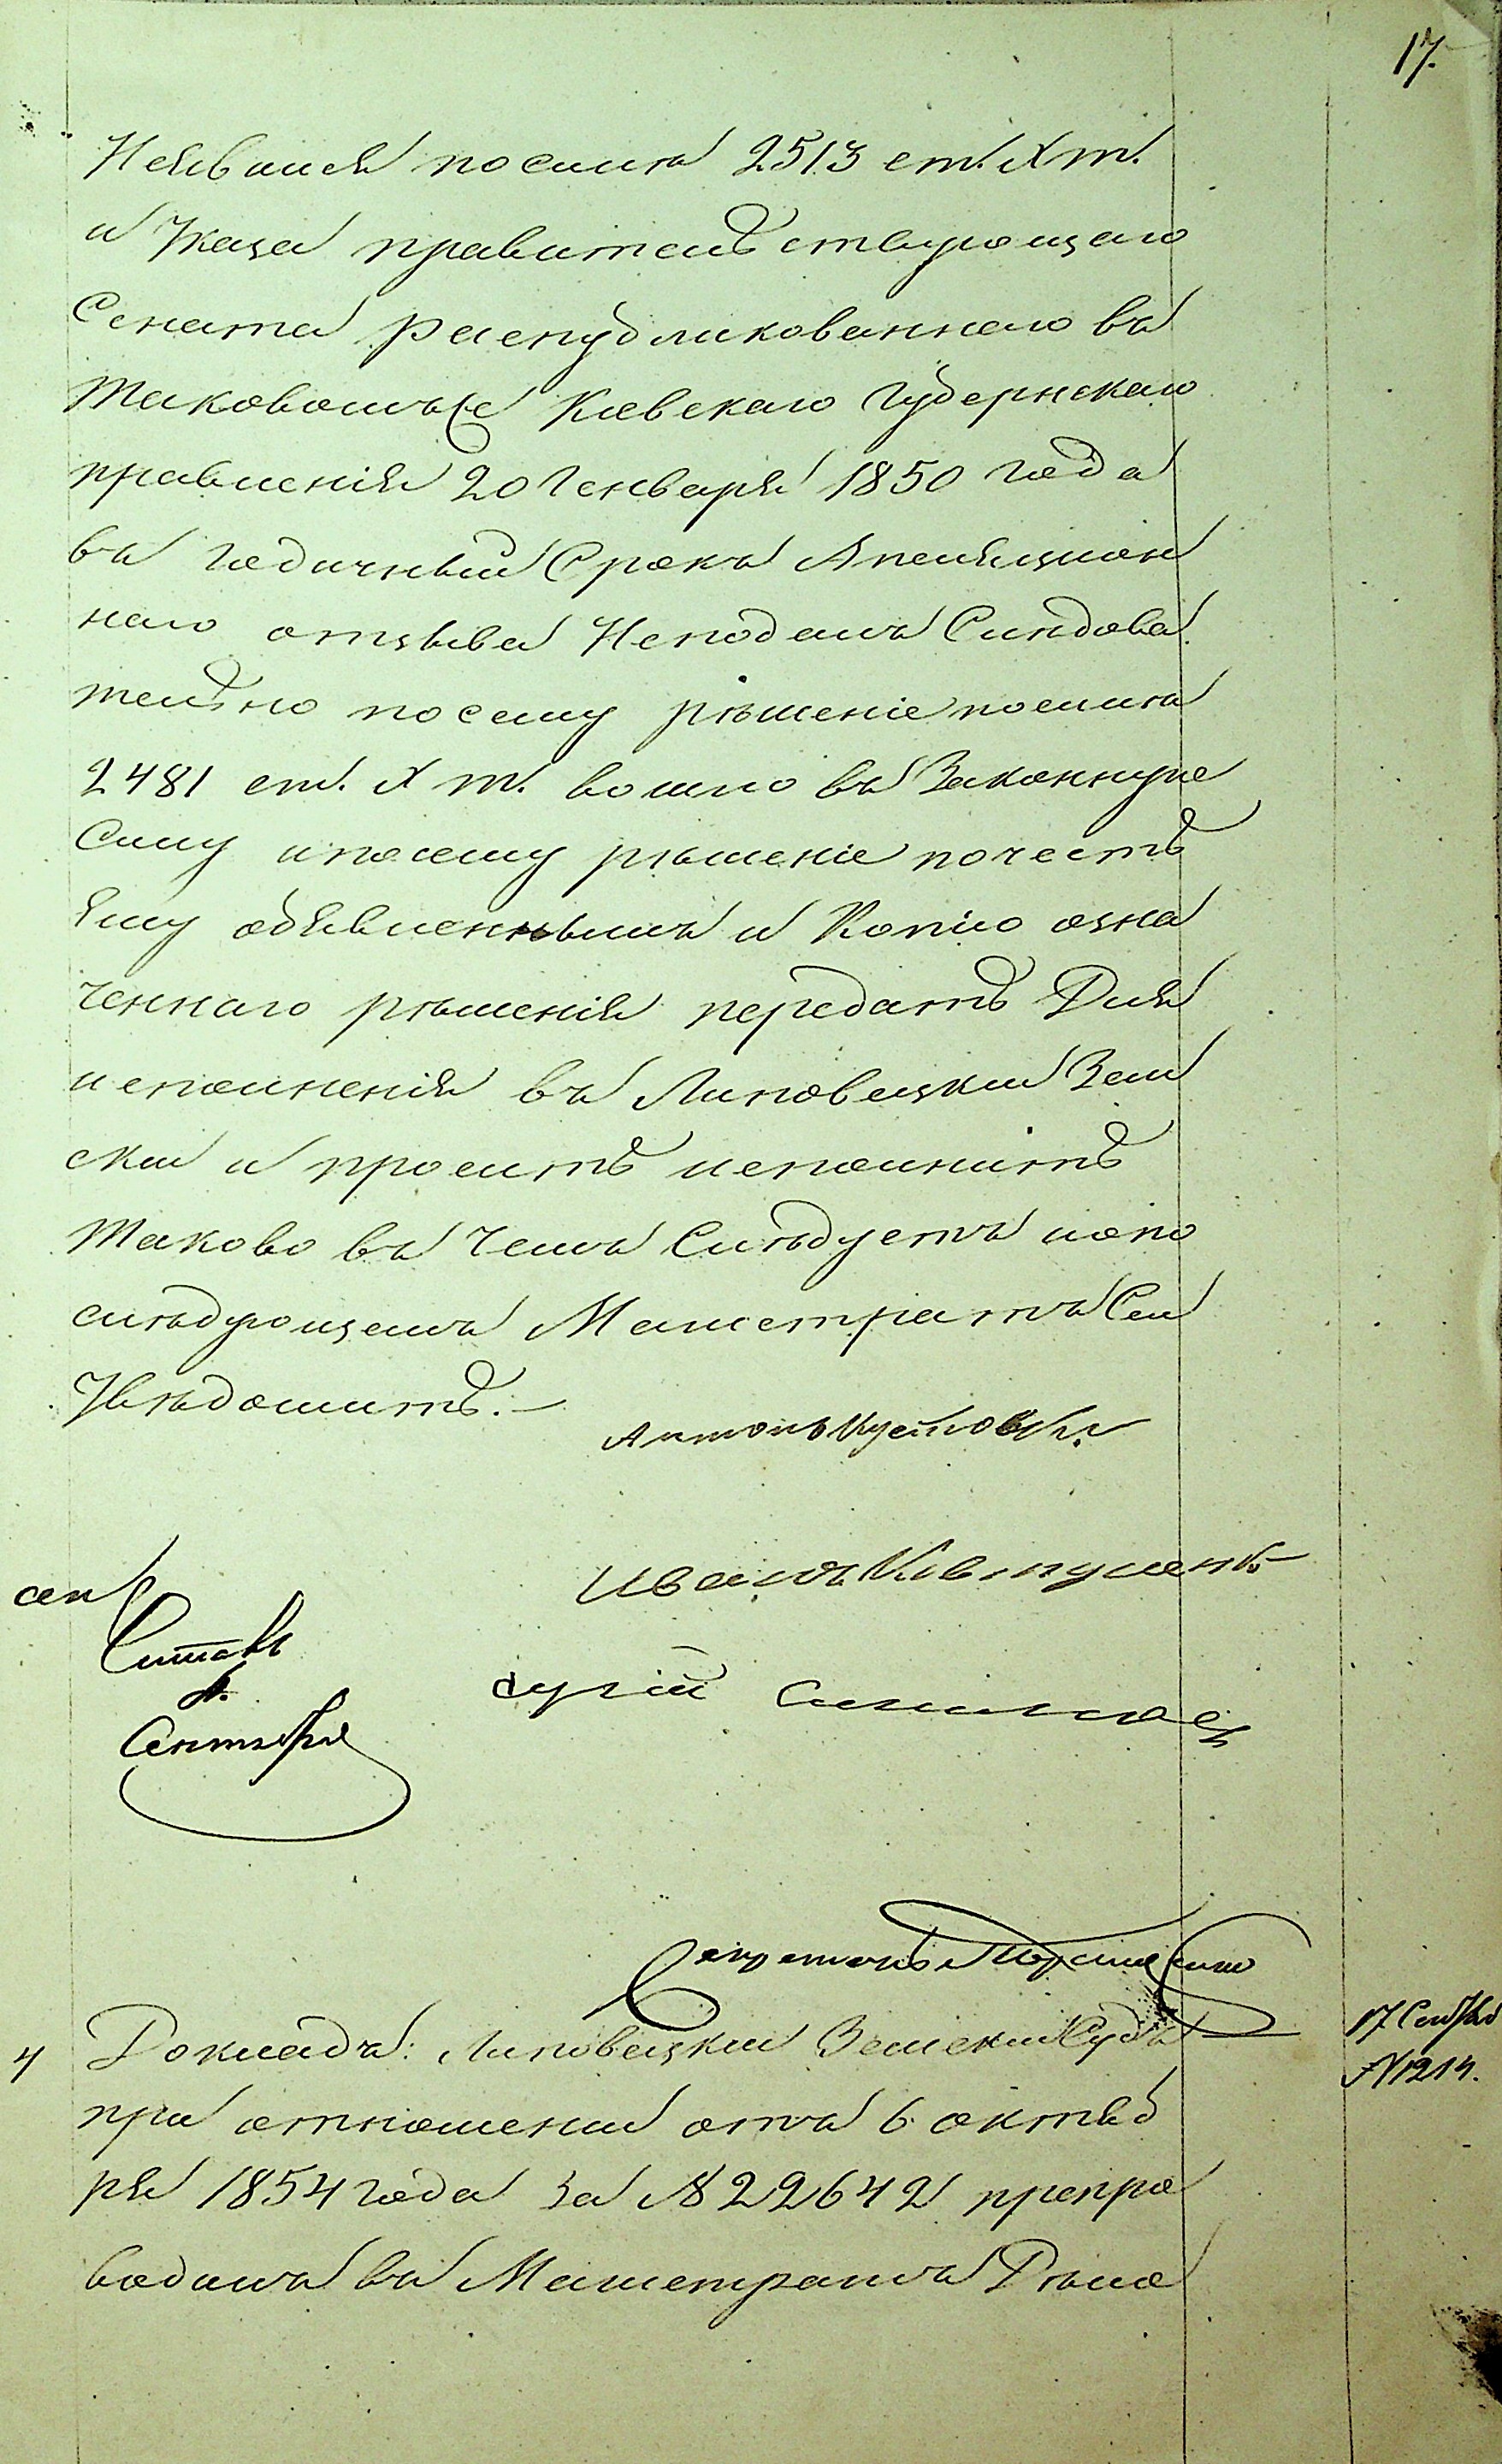 17.
Неявился посилѣ 2513 ст. X т.
и Указа правительствующаго
Сената распубликованнаго въ
таковомъже Киевскаго Губернскаго
правленія 20 Генваря 1850 года
въ годичный Срокъ Апеляціон
наго отзыва Неподалъ Слидова
тельно посему рѣшеніе посилѣ
2481 ст. X т. вошло въ Законную
Силу ипосему рѣшеніе почесть
Ему объявленнымъ и Копію озна
ченнаго рѣшенія передать Для
исполненія въ Липовецкий Зем
ский и просить исполнить
таково въ чемъ Слѣдуетъ ипо
слѣдующемъ Магистратъ Сей
Увѣдомить. —
Антонъ
Иванъ Ковтуненко
сен
Читалъ
Сентября
Секретарь
17 Сентбр
N 1214.
4 Докладъ: Липовецкий Земский Судъ
при отношении отъ 6 октяб
ря 1854 года за № 22642 препро
водилъ въ Магистратъ Дѣло